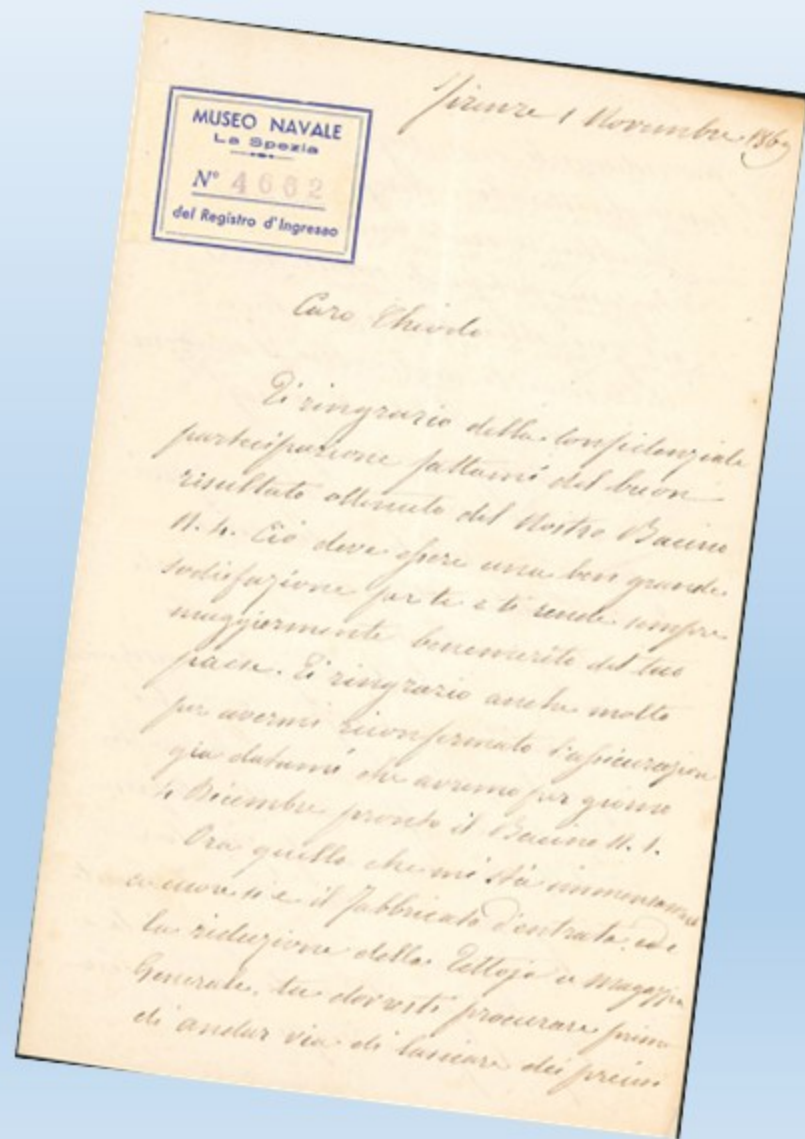 Firenze 1 Novembre 1869
MUSEO NAVALE
La Spezia
N° 4662
del Registro d'Ingresso
Caro Chiodo
Ti ringrazio della confidenziale
partecipazione fattami del buon
risultato ottenuto del Nostro Bacino
N. 4. Ciò deve essere una ben grande
sodisfazione per te e ti rende sempre
maggiormente benemerito del tuo
paese. Ti ringrazio anche molto
per avermi riconfermato l'assicurazion
già datami che avremo per giorno
4 Dicembre pronto il Bacino N. 1.
Ora quello che mi stà
a cuore si è il Fabbricato d'entrata, ed è
la riduzione della Tettoja a Magazzin
Generale, tu dovresti procurare prima
di andar via di lasciare dei precisi